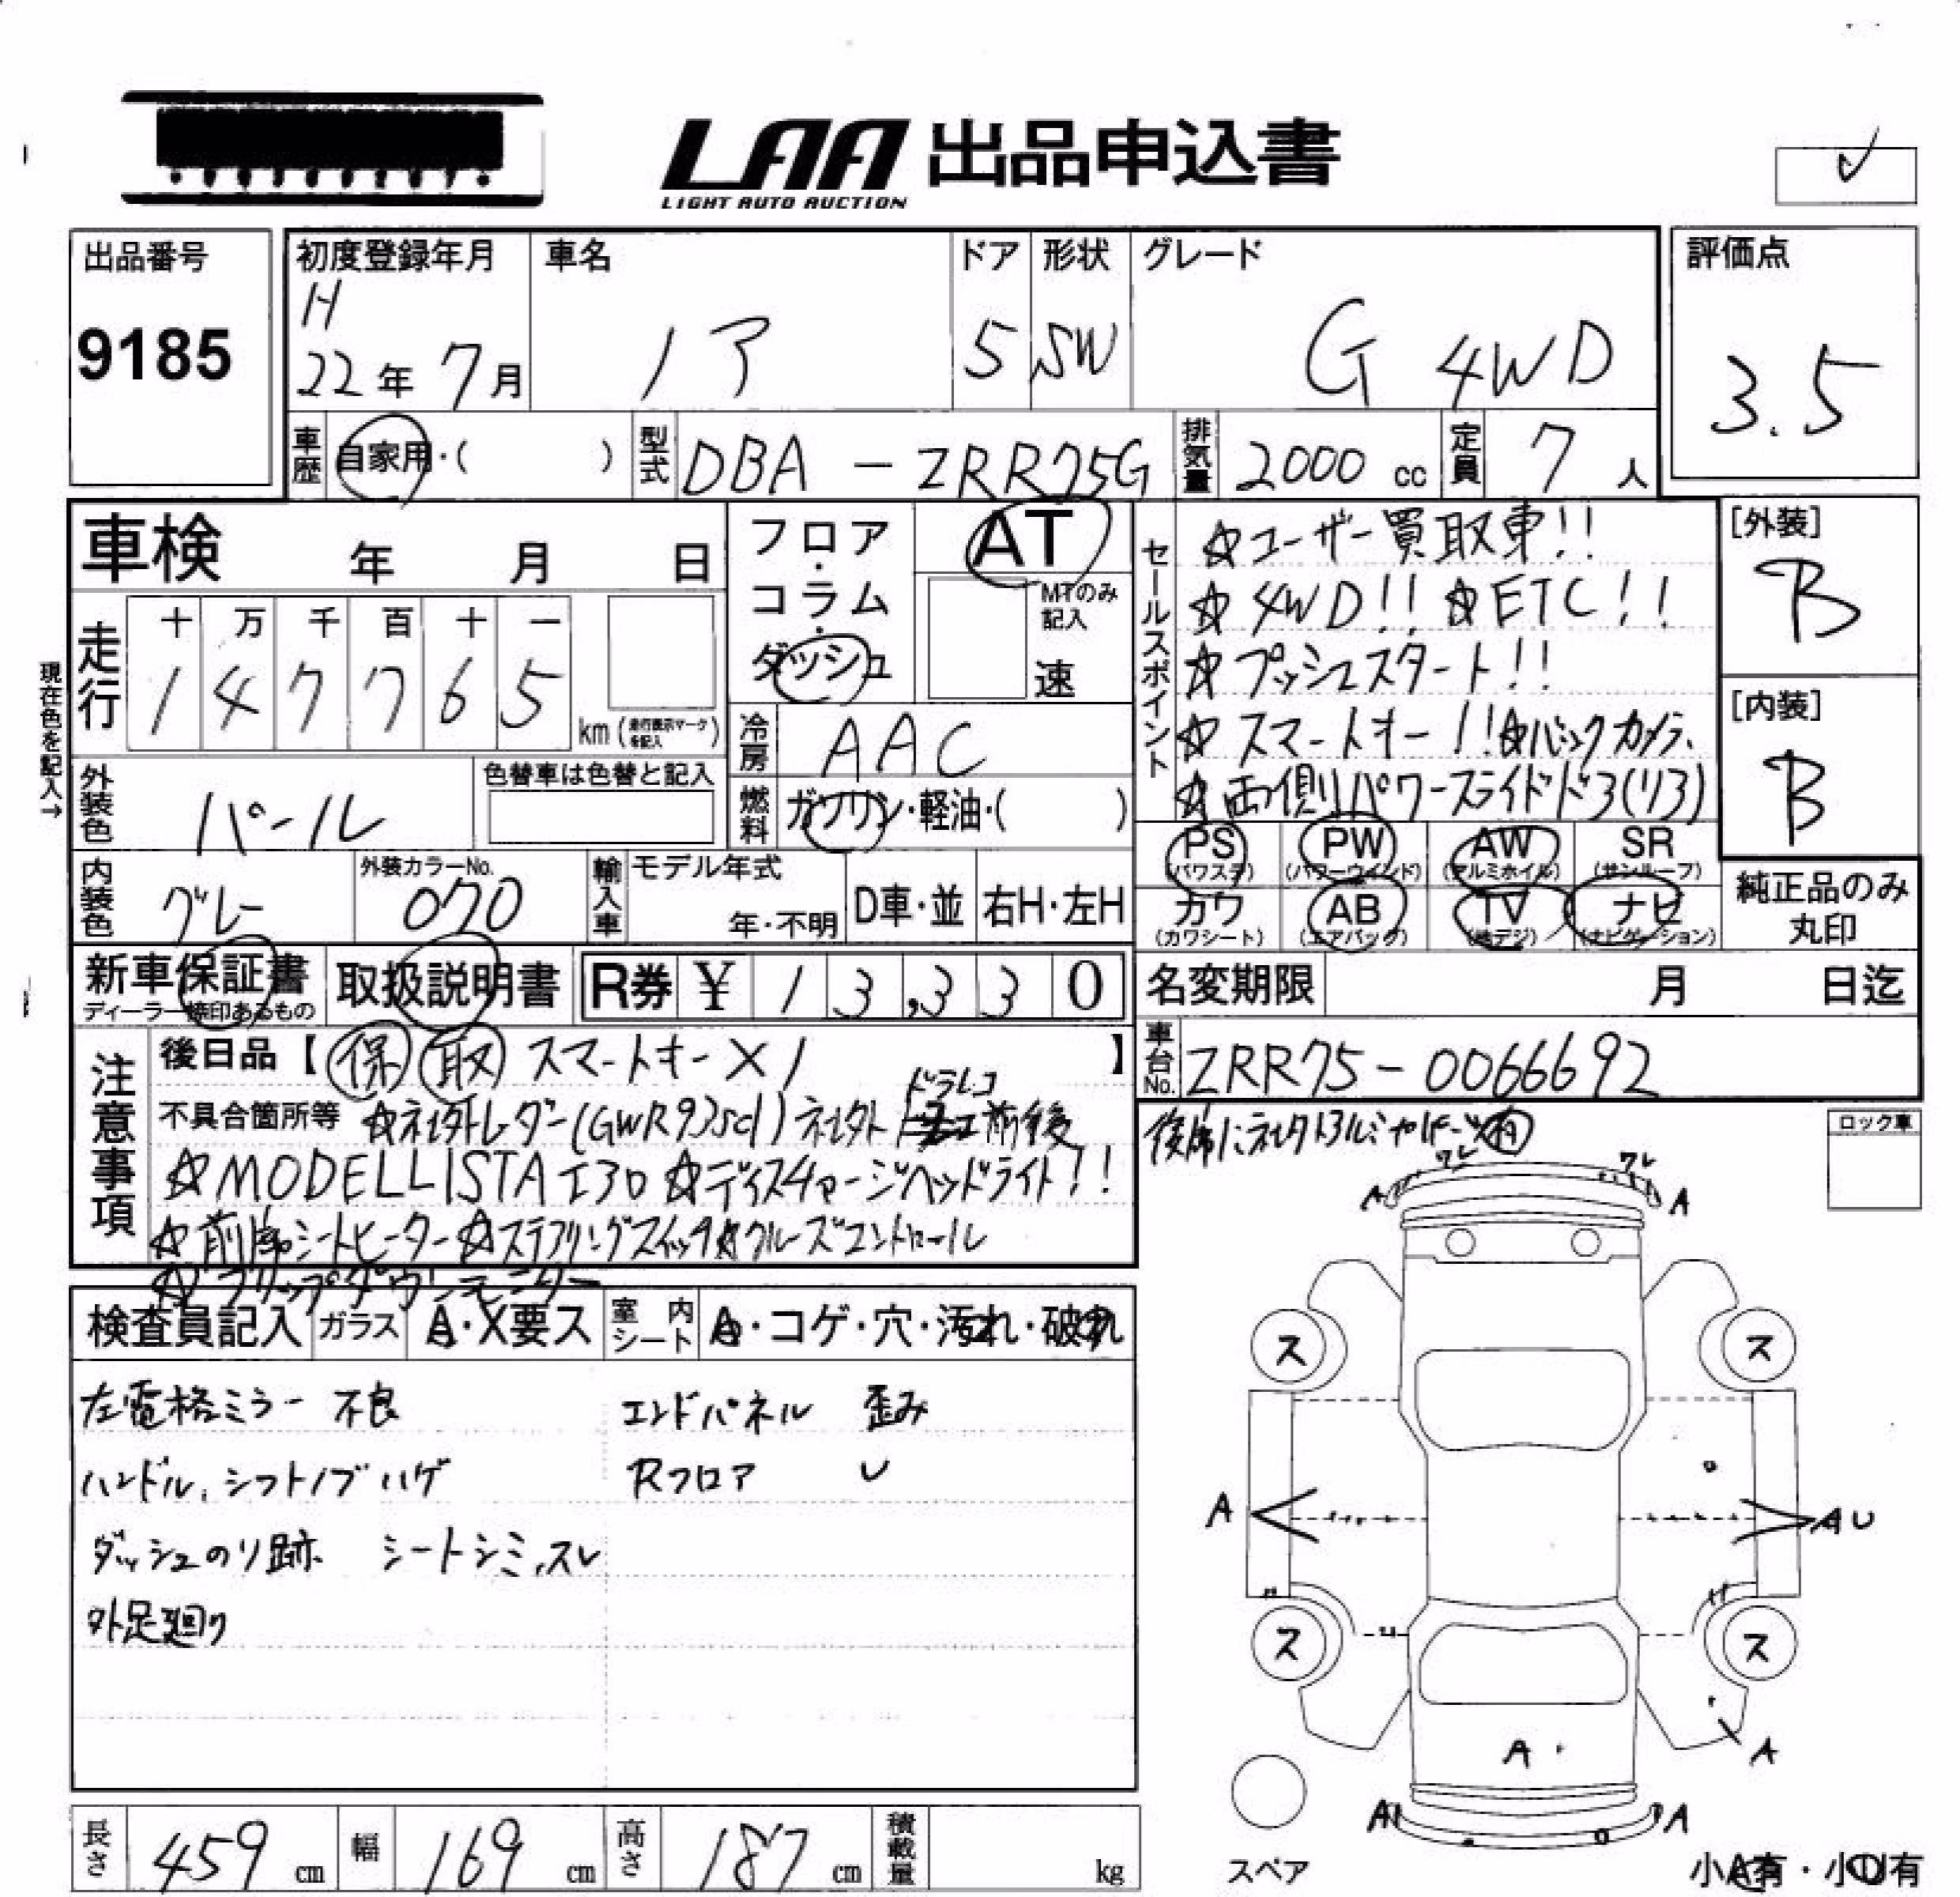 LAA 出品申込書
LIGHT AUTO AUCTION
出品番号
9185
初度登録年月
H
22年 7月
車名
ノア
ドア
5
形状
SW
グレード
G 4WD
評価点
3.5
車歴 自家用・( )
型式 DBA-ZRR75G
排気量 2000 cc
定員 7 人
車検 年 月 日
フロア・コラム・ダッシュ
AT
MTのみ記入
速
走行
十 万 千 百 十 一
1 4 7 7 6 5
km (走行表示マークを記入)
現在色を記入→
冷房 AAC
外装色 パール
色替車は色替と記入
燃料 ガソリン・軽油・( )
内装色 グレー
外装カラーNo. 070
輸入車 モデル年式
年・不明
D車・並
右H・左H
新車保証書
ディーラー捺印あるもの
取扱説明書
R券 ¥ 13,330
セールスポイント
☆ユーザー買取車!!
☆4WD!! ☆ETC!!
☆プッシュスタート!!
☆スマートキー!!☆バックカメラ
☆両側パワースライドドア(リア)
[外装]
B
[内装]
B
PS (パワステ)
PW (パワーウインド)
AW (アルミホイル)
SR (サンルーフ)
カワ (カワシート)
AB (エアバッグ)
TV (地デジ)
ナビ (ナビゲーション)
純正品のみ丸印
名変期限 月 日迄
車台No. ZRR75-0066692
注意事項
後日品【保 取 スマートキー×1 】
ドラレコ
不具合箇所等 ☆社外レーダー(GWR93sd)社外 前後
☆MODELLISTAエアロ ☆ディスチャージヘッドライト!!
☆前席シートヒーター☆ステアリングスイッチ☆クルーズコントロール
☆フリップダウンモニター
後席に社外アルミ 有
ロック車
検査員記入 ガラス A・X要ス 室内シート A・コゲ・穴・汚れ・破れ
左電格ミラー 不良 エンドパネル 歪み
ハンドル、シフトノブハゲ Rフロア U
ダッシュのり跡 シートシミ、スレ
外足廻り
ワレ ワレ
A A
ス ス
A AU
ス ス
A A
A A
スペア
小A有・小U有
長さ 459 cm
幅 169 cm
高さ 187 cm
積載量 kg